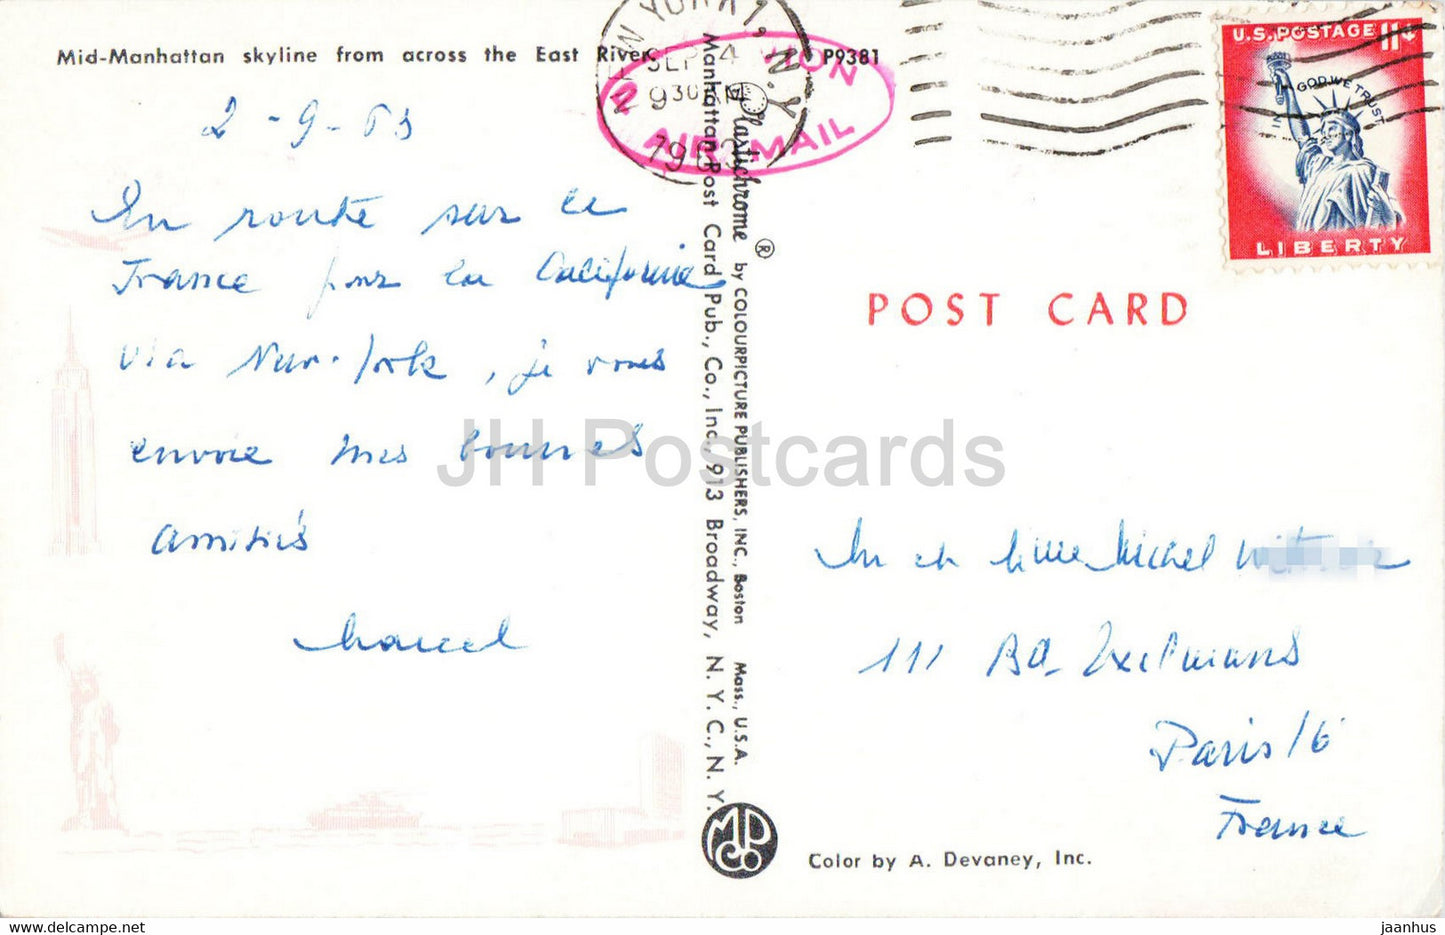 Mid-Manhattan skyline from across the East River
P9381
2-9-63
En route sur le
France pour la Californie
via New-York, je vous
envoie mes bonnes
amitiés
Marcel
Plastichrome ® by COLOURPICTURE PUBLISHERS, INC., Boston Mass., U.S.A.
Manhattan Post Card Pub., Co., Inc., 913 Broadway, N. Y. C., N. Y.
NEW YORK 1, N.Y.
SEP 4
930 AM
1963
AIR MAIL
U.S. POSTAGE 11¢
IN GOD WE TRUST
LIBERTY
POST CARD
Mr et Mme Michel
111 Bd Exelmans
Paris 16
France
MPCo
Color by A. Devaney, Inc.
JH Postcards
HIP POSTCARD.com
jaanhus